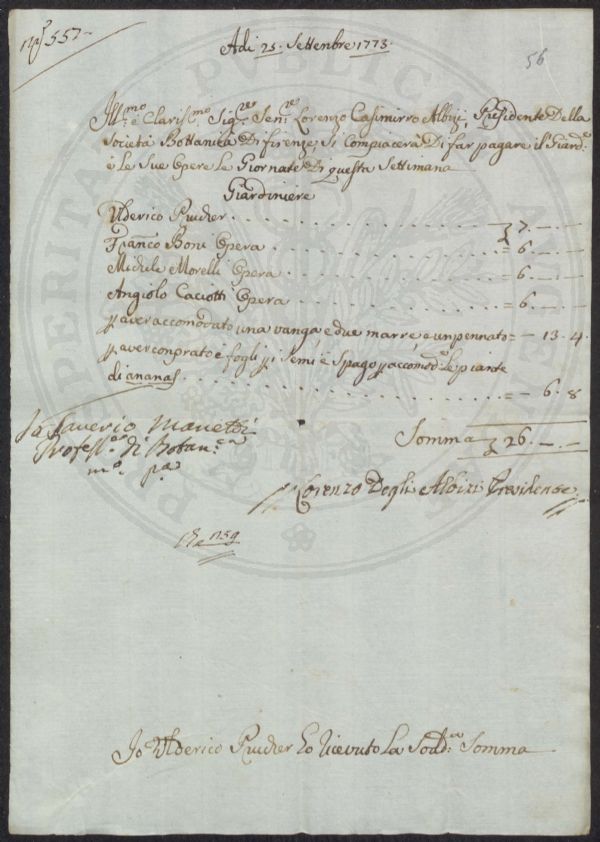 Nº 557
56
Adi 25. Settenbre 1773.
Ill.mo e Clariss.mo Sig.re Sen.re Lorenzo Casimirro Albizj, Presidente Della
Società Bottanica Di firenze, Si Compiacerà Di far pagare il Giard.e
e Le Sue Opere Le Giornate Di questa Settimana
Giardiniere
Ulderico Prucker . . . 7. — —
Franco Boni Opera . . . = 6. — —
Michele Morelli Opera . . . = 6. — —
Angiolo Caciotti Opera . . . = 6. — —
p aver accomodato una vanga e due marre e un pennato = — 13. 4.
p aver conprato e fogli p i Semi e Spago p accomod.e le piante
di ananas . . . = — 6. 8
Somma 26. — —
Io Saverio Manetti
Profess.e di Botan.ca
m.o p.a
Lorenzo Degli Albizi Presidente
Io Ulderico Prucker ho ricevuto La Sudd.a Somma